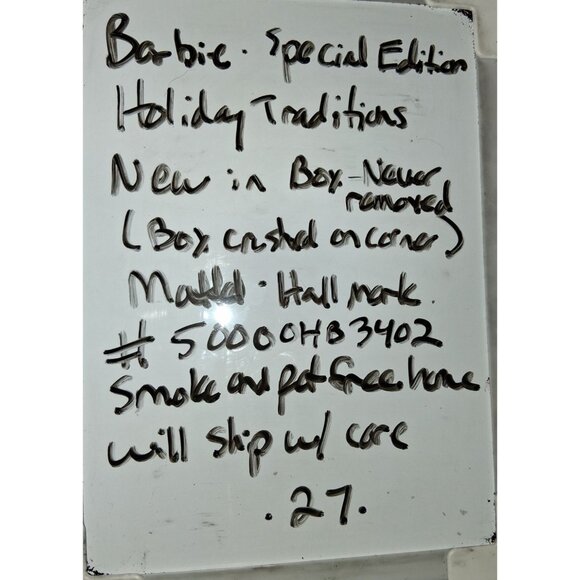 Barbie · Special Edition
Holiday Traditions
New in Box - Never
removed
(Box crushed on corner)
Mattel · Hallmark.
# 50000HB3402
Smoke and pet free home
will ship w/ care
. 27.